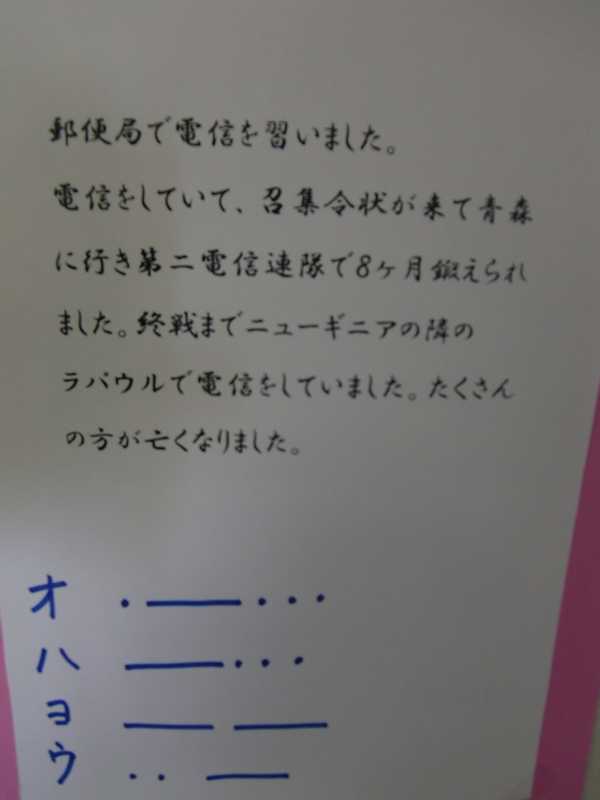 郵便局で電信を習いました。
電信をしていて、召集令状が来て青森
に行き第二電信連隊で8ヶ月鍛えられ
ました。終戦までニューギニアの隣の
ラバウルで電信をしていました。たくさん
の方が亡くなりました。
オ ・ー・・・
ハ ー・・・
ヨ ーー
ウ ・・ー